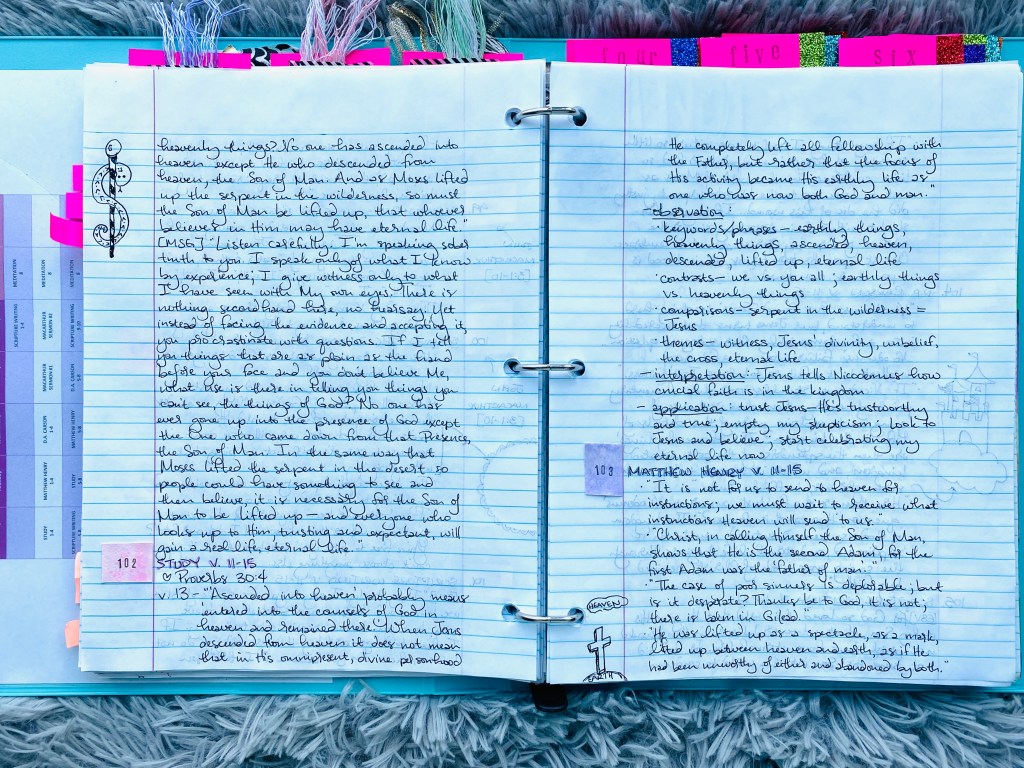 four
five
six
heavenly things? No one has ascended into
heaven except He who descended from
heaven, the Son of Man. And as Moses lifted
up the serpent in the wilderness, so must
the Son of Man be lifted up, that whoever
believes in Him may have eternal life."
[MSG] "Listen carefully. I'm speaking sober
truth to you. I speak only of what I know
by experience; I give witness only to what
I have seen with My own eyes. There is
nothing secondhand here, no hearsay. Yet
instead of facing the evidence and accepting it,
you procrastinate with questions. If I tell
you things that are as plain as the hand
before your face and you don't believe Me,
what use is there in telling you things you
can't see, the things of God? No one has
ever gone up into the presence of God except
the One who came down from that Presence,
the Son of Man. In the same way that
Moses lifted the serpent in the desert so
people could have something to see and
then believe, it is necessary for the Son of
Man to be lifted up — and everyone who
looks up to Him, trusting and expectant, will
gain a real life, eternal life."
102 STUDY V. 11-15
♡ Proverbs 30:4
v. 13 - "'Ascended into heaven' probably means
'entered into the counsels of God in
heaven and remained there.' When Jesus
descended from heaven it does not mean
that in His omnipresent, divine personhood
He completely left all fellowship with
the Father, but rather that the focus of
His activity became His earthly life as
one who was now both God and man."
- observation:
· keywords/phrases - earthly things,
heavenly things, ascended, heaven,
descended, lifted up, eternal life
· contrasts - we vs. you all; earthly things
vs. heavenly things
· comparisons - serpent in the wilderness =
Jesus
· themes - witness, Jesus' divinity, unbelief,
the cross, eternal life
- interpretation: Jesus tells Nicodemus how
crucial faith is in the kingdom
- application: trust Jesus - He's trustworthy
and true; empty my skepticism; look to
Jesus and believe; start celebrating my
eternal life now
103 MATTHEW HENRY V. 11-15
· "It is not for us to send to heaven for
instructions; we must wait to receive what
instructions Heaven will send to us."
· "Christ, in calling Himself the Son of Man,
shows that He is the second Adam, for the
first Adam was the father of man."
· "The case of poor sinners is deplorable; but
is it desperate? Thanks be to God, it is not;
there is balm in Gilead."
· "He was lifted up as a spectacle, as a mark,
lifted up between heaven and earth, as if He
had been unworthy of either and abandoned by both."
HEAVEN
EARTH
MEDITATION
8
MEDITATION
8
SCRIPTURE WRITING
MACARTHUR
SERMON #2
SCRIPTURE WRITING
MACARTHUR
SERMON #1
D.A. CARSON
D.A. CARSON
MATTHEW HENRY
MATTHEW HENRY
STUDY
STUDY
SCRIPTURE WRITING